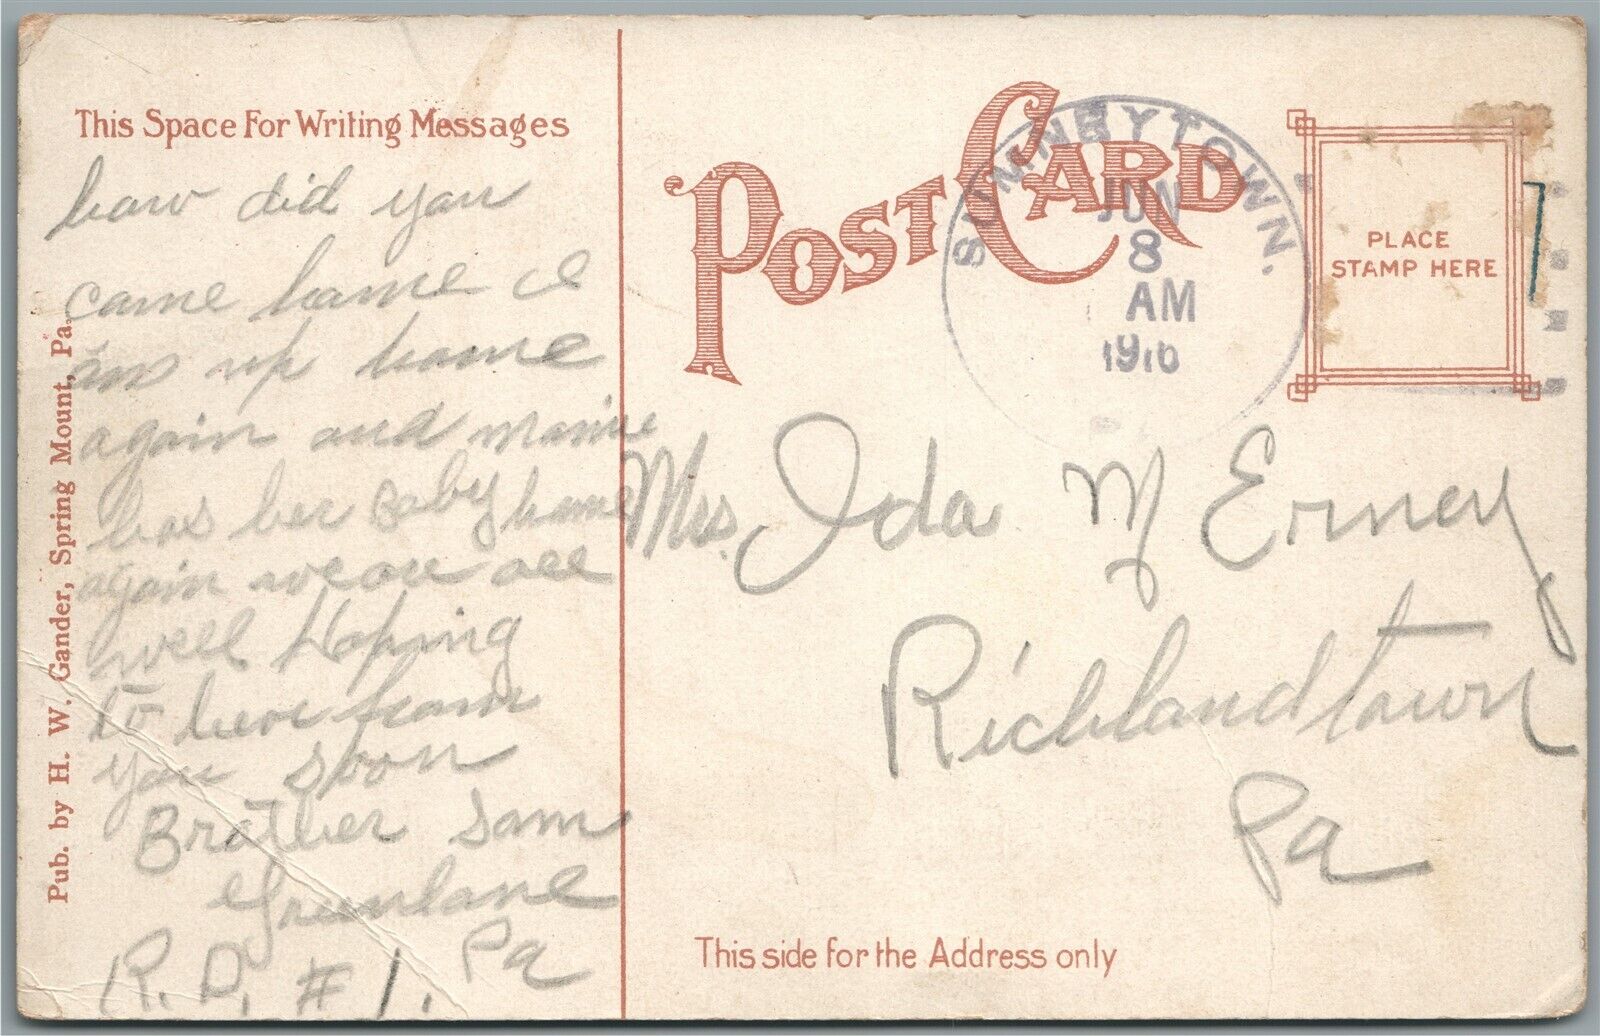 This Space For Writing Messages
how did you
came home I
am up home
again and mamie
has her Baby home
again we are all
well Hoping
to here from
you soon
Brother Sam
Greenlane
R.D. #1. Pa
Pub. by H. W. Gander, Spring Mount, Pa.
POST CARD
SUMNEYTOWN.
JUN
8
AM
1910
PLACE
STAMP HERE
Mrs. Ida M Erney
Richlandtown
Pa
This side for the Address only